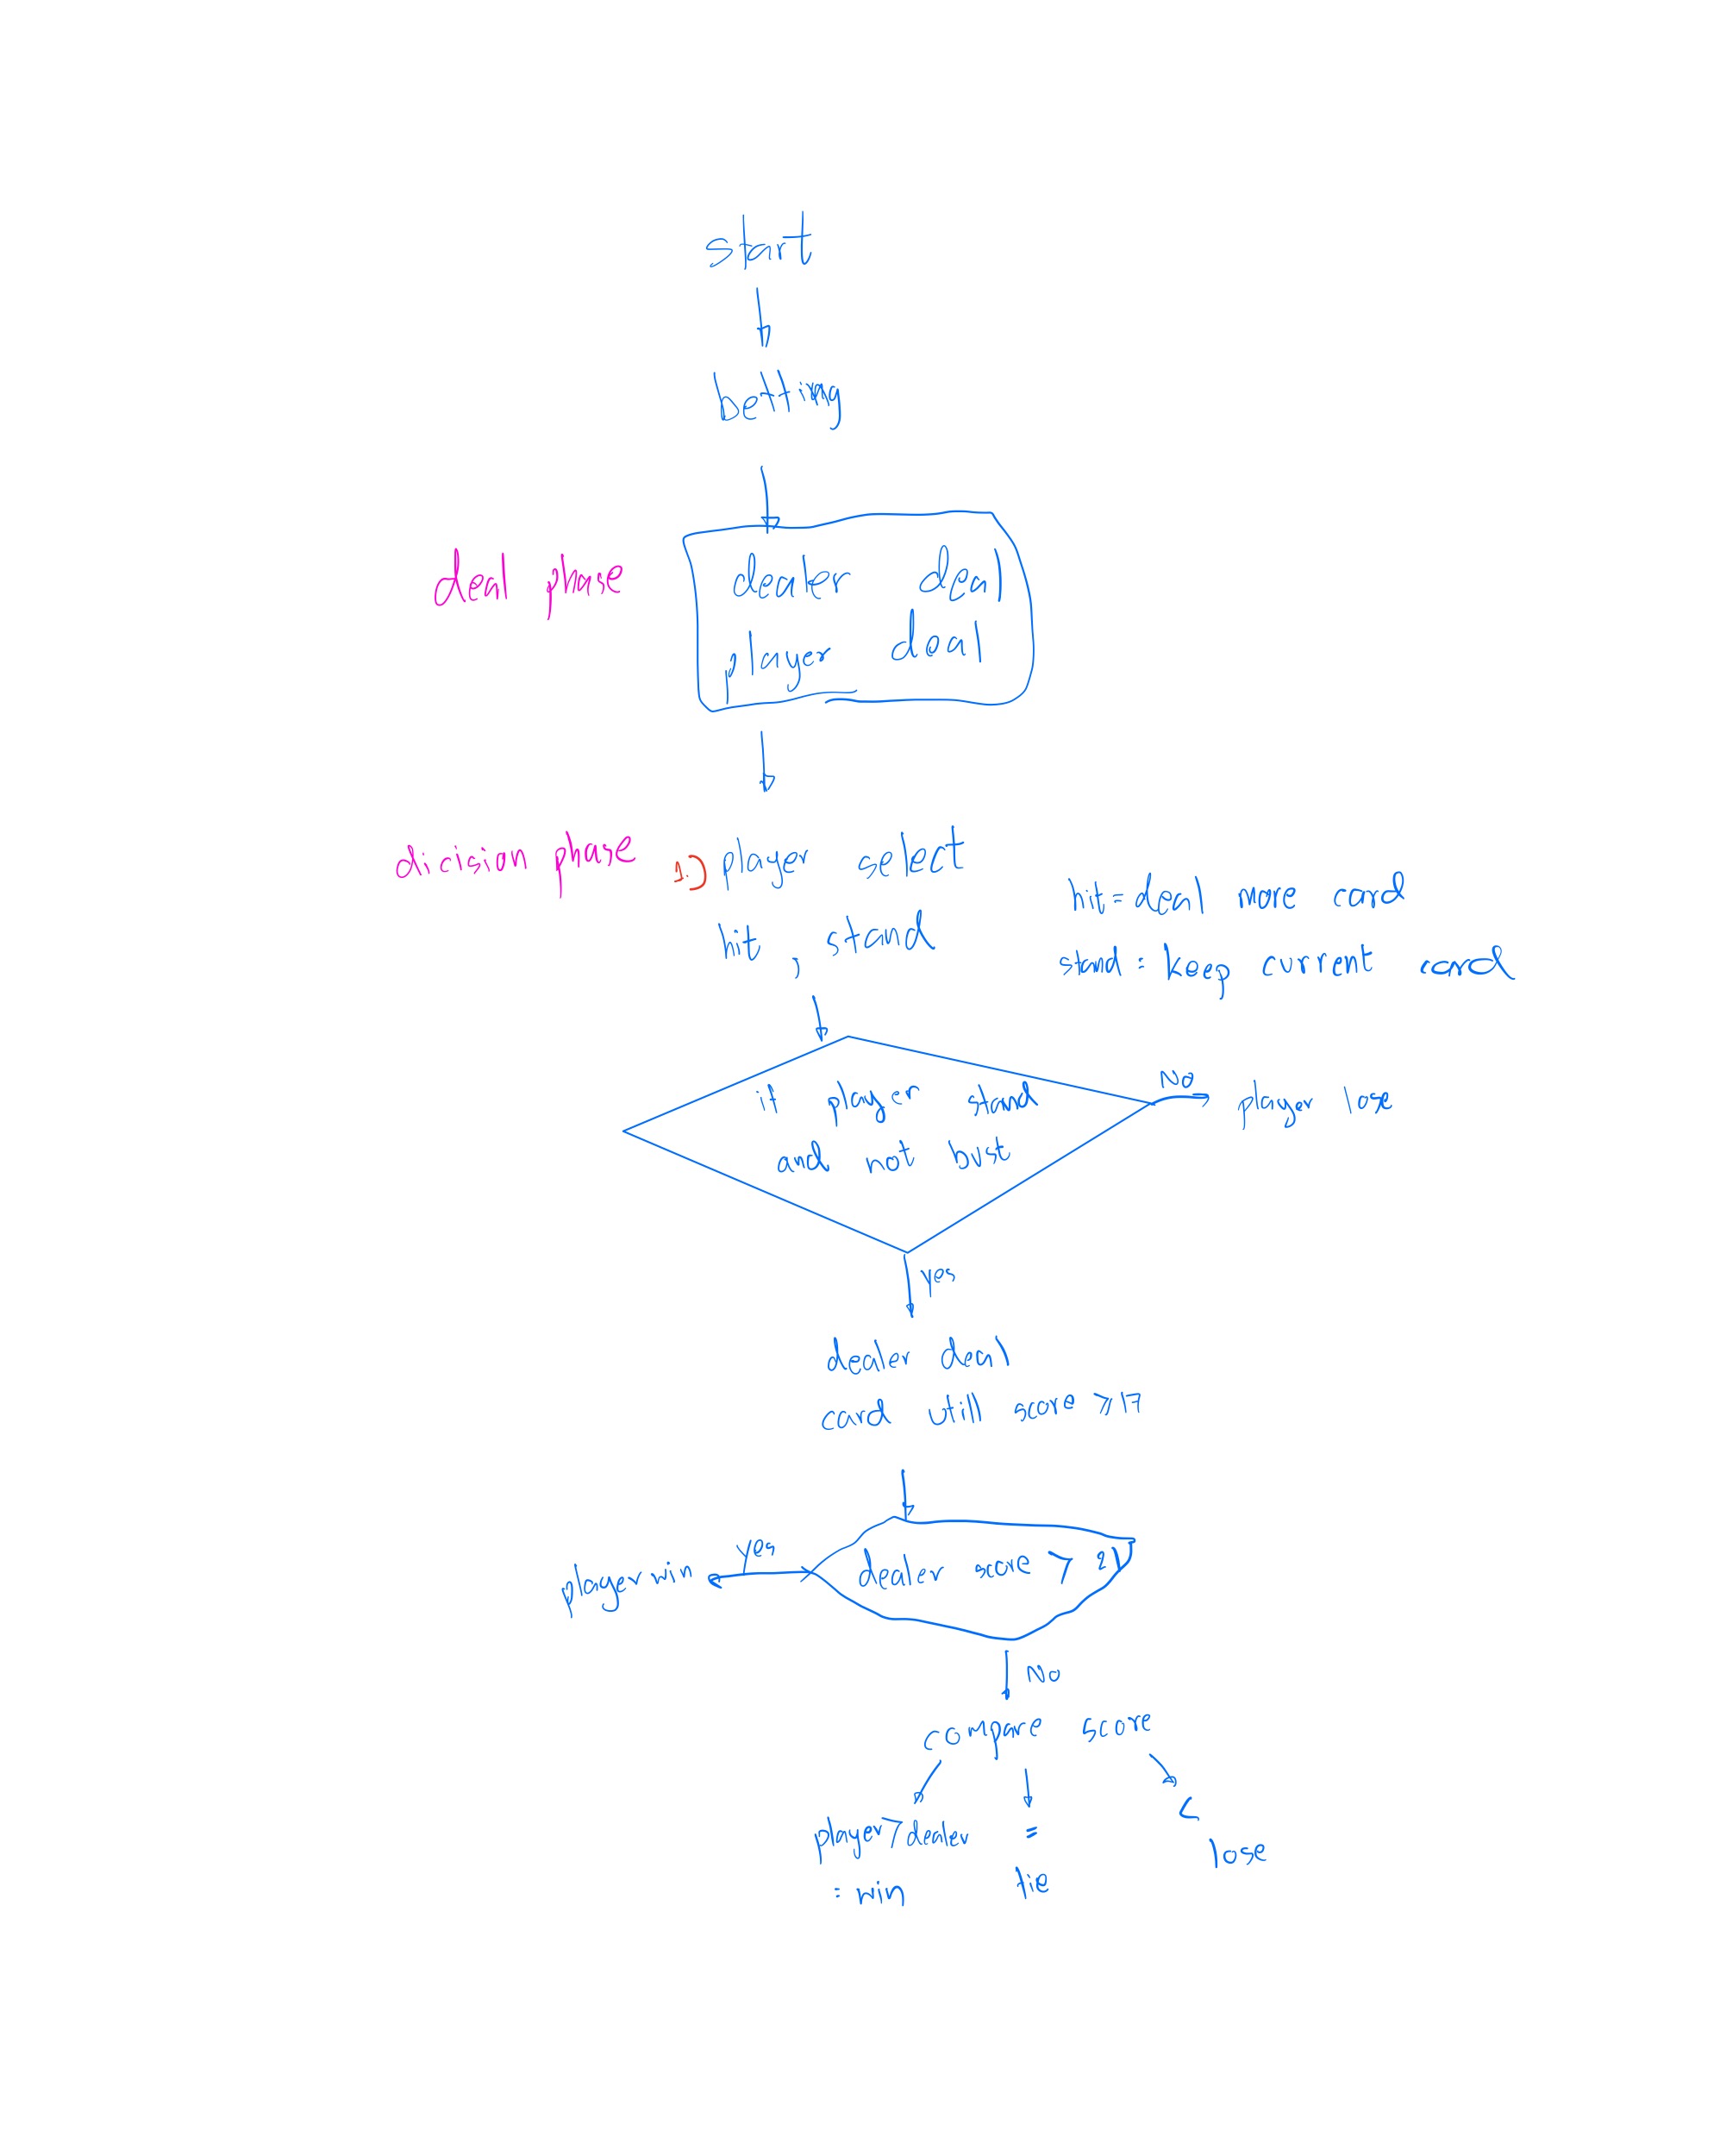 start
betting
deal phase
dealer deal
player deal
dicision phase
1.) player select
hit , stand
hit = deal more card
stand = keep current card
if player stand
and not bust
No
player lose
yes
dealer deal
card utill score ⩾ 17
dealer score > 21
Yes
player win
No
compare score
player > dealer
= win
=
tie
<
lose